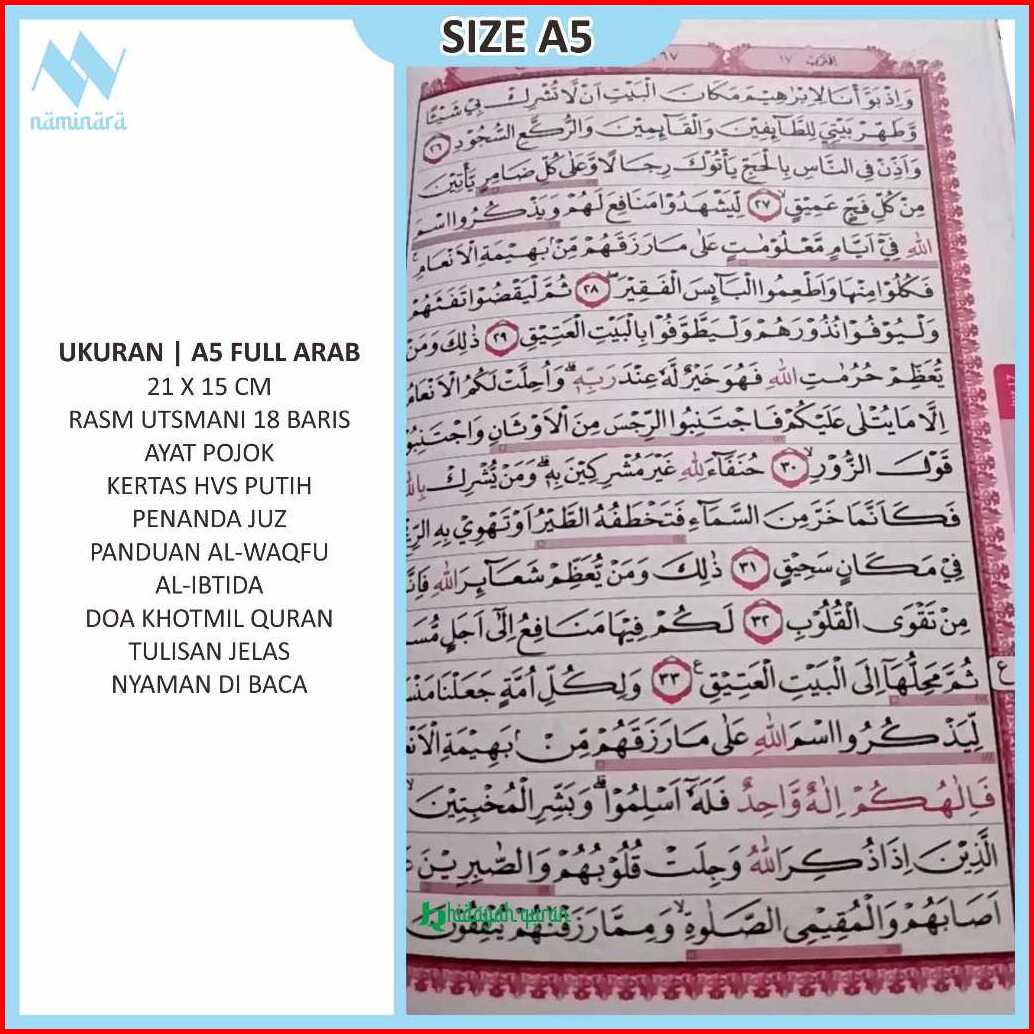 nāmināra
SIZE A5
UKURAN | A5 FULL ARAB
21 X 15 CM
RASM UTSMANI 18 BARIS
AYAT POJOK
KERTAS HVS PUTIH
PENANDA JUZ
PANDUAN AL-WAQFU
AL-IBTIDA
DOA KHOTMIL QURAN
TULISAN JELAS
NYAMAN DI BACA
اِقْتَرَبَ ١٧
وَاِذْ بَوَّأْنَا لِاِبْرٰهِيْمَ مَكَانَ الْبَيْتِ اَنْ لَّا تُشْرِكْ بِيْ شَيْـًٔا
وَّطَهِّرْ بَيْتِيَ لِلطَّاۤىِٕفِيْنَ وَالْقَاۤىِٕمِيْنَ وَالرُّكَّعِ السُّجُوْدِ ٢٦
وَاَذِّنْ فِى النَّاسِ بِالْحَجِّ يَأْتُوْكَ رِجَالًا وَّعَلٰى كُلِّ ضَامِرٍ يَّأْتِيْنَ
مِنْ كُلِّ فَجٍّ عَمِيْقٍ ٢٧ لِّيَشْهَدُوْا مَنَافِعَ لَهُمْ وَيَذْكُرُوا اسْمَ
اللّٰهِ فِيْٓ اَيَّامٍ مَّعْلُوْمٰتٍ عَلٰى مَا رَزَقَهُمْ مِّنْۢ بَهِيْمَةِ الْاَنْعَامِۚ
فَكُلُوْا مِنْهَا وَاَطْعِمُوا الْبَاۤىِٕسَ الْفَقِيْرَۖ ٢٨ ثُمَّ لْيَقْضُوْا تَفَثَهُمْ
وَلْيُوْفُوْا نُذُوْرَهُمْ وَلْيَطَّوَّفُوْا بِالْبَيْتِ الْعَتِيْقِ ٢٩ ذٰلِكَ وَمَنْ
يُّعَظِّمْ حُرُمٰتِ اللّٰهِ فَهُوَ خَيْرٌ لَّهٗ عِنْدَ رَبِّهٖۗ وَاُحِلَّتْ لَكُمُ الْاَنْعَامُ
اِلَّا مَا يُتْلٰى عَلَيْكُمْ فَاجْتَنِبُوا الرِّجْسَ مِنَ الْاَوْثَانِ وَاجْتَنِبُوْا
قَوْلَ الزُّوْرِۙ ٣٠ حُنَفَاۤءَ لِلّٰهِ غَيْرَ مُشْرِكِيْنَ بِهٖۗ وَمَنْ يُّشْرِكْ بِاللّٰهِ
فَكَاَنَّمَا خَرَّ مِنَ السَّمَاۤءِ فَتَخْطَفُهُ الطَّيْرُ اَوْ تَهْوِيْ بِهِ
فِيْ مَكَانٍ سَحِيْقٍ ٣١ ذٰلِكَ وَمَنْ يُّعَظِّمْ شَعَاۤىِٕرَ اللّٰهِ
مِنْ تَقْوَى الْقُلُوْبِ ٣٢ لَكُمْ فِيْهَا مَنَافِعُ اِلٰٓى اَجَلٍ
ثُمَّ مَحِلُّهَآ اِلَى الْبَيْتِ الْعَتِيْقِ ࣖ ٣٣ وَلِكُلِّ اُمَّةٍ جَعَلْنَا
لِّيَذْكُرُوا اسْمَ اللّٰهِ عَلٰى مَا رَزَقَهُمْ مِّنْۢ بَهِيْمَةِ
فَاِلٰهُكُمْ اِلٰهٌ وَّاحِدٌ فَلَهٗٓ اَسْلِمُوْاۗ وَبَشِّرِ الْمُخْبِتِيْنَۙ
الَّذِيْنَ اِذَا ذُكِرَ اللّٰهُ وَجِلَتْ قُلُوْبُهُمْ وَالصّٰبِرِيْنَ
اَصَابَهُمْ وَالْمُقِيْمِى الصَّلٰوةِۙ وَمِمَّا رَزَقْنٰهُمْ يُنْفِقُوْنَ
hidayah quran